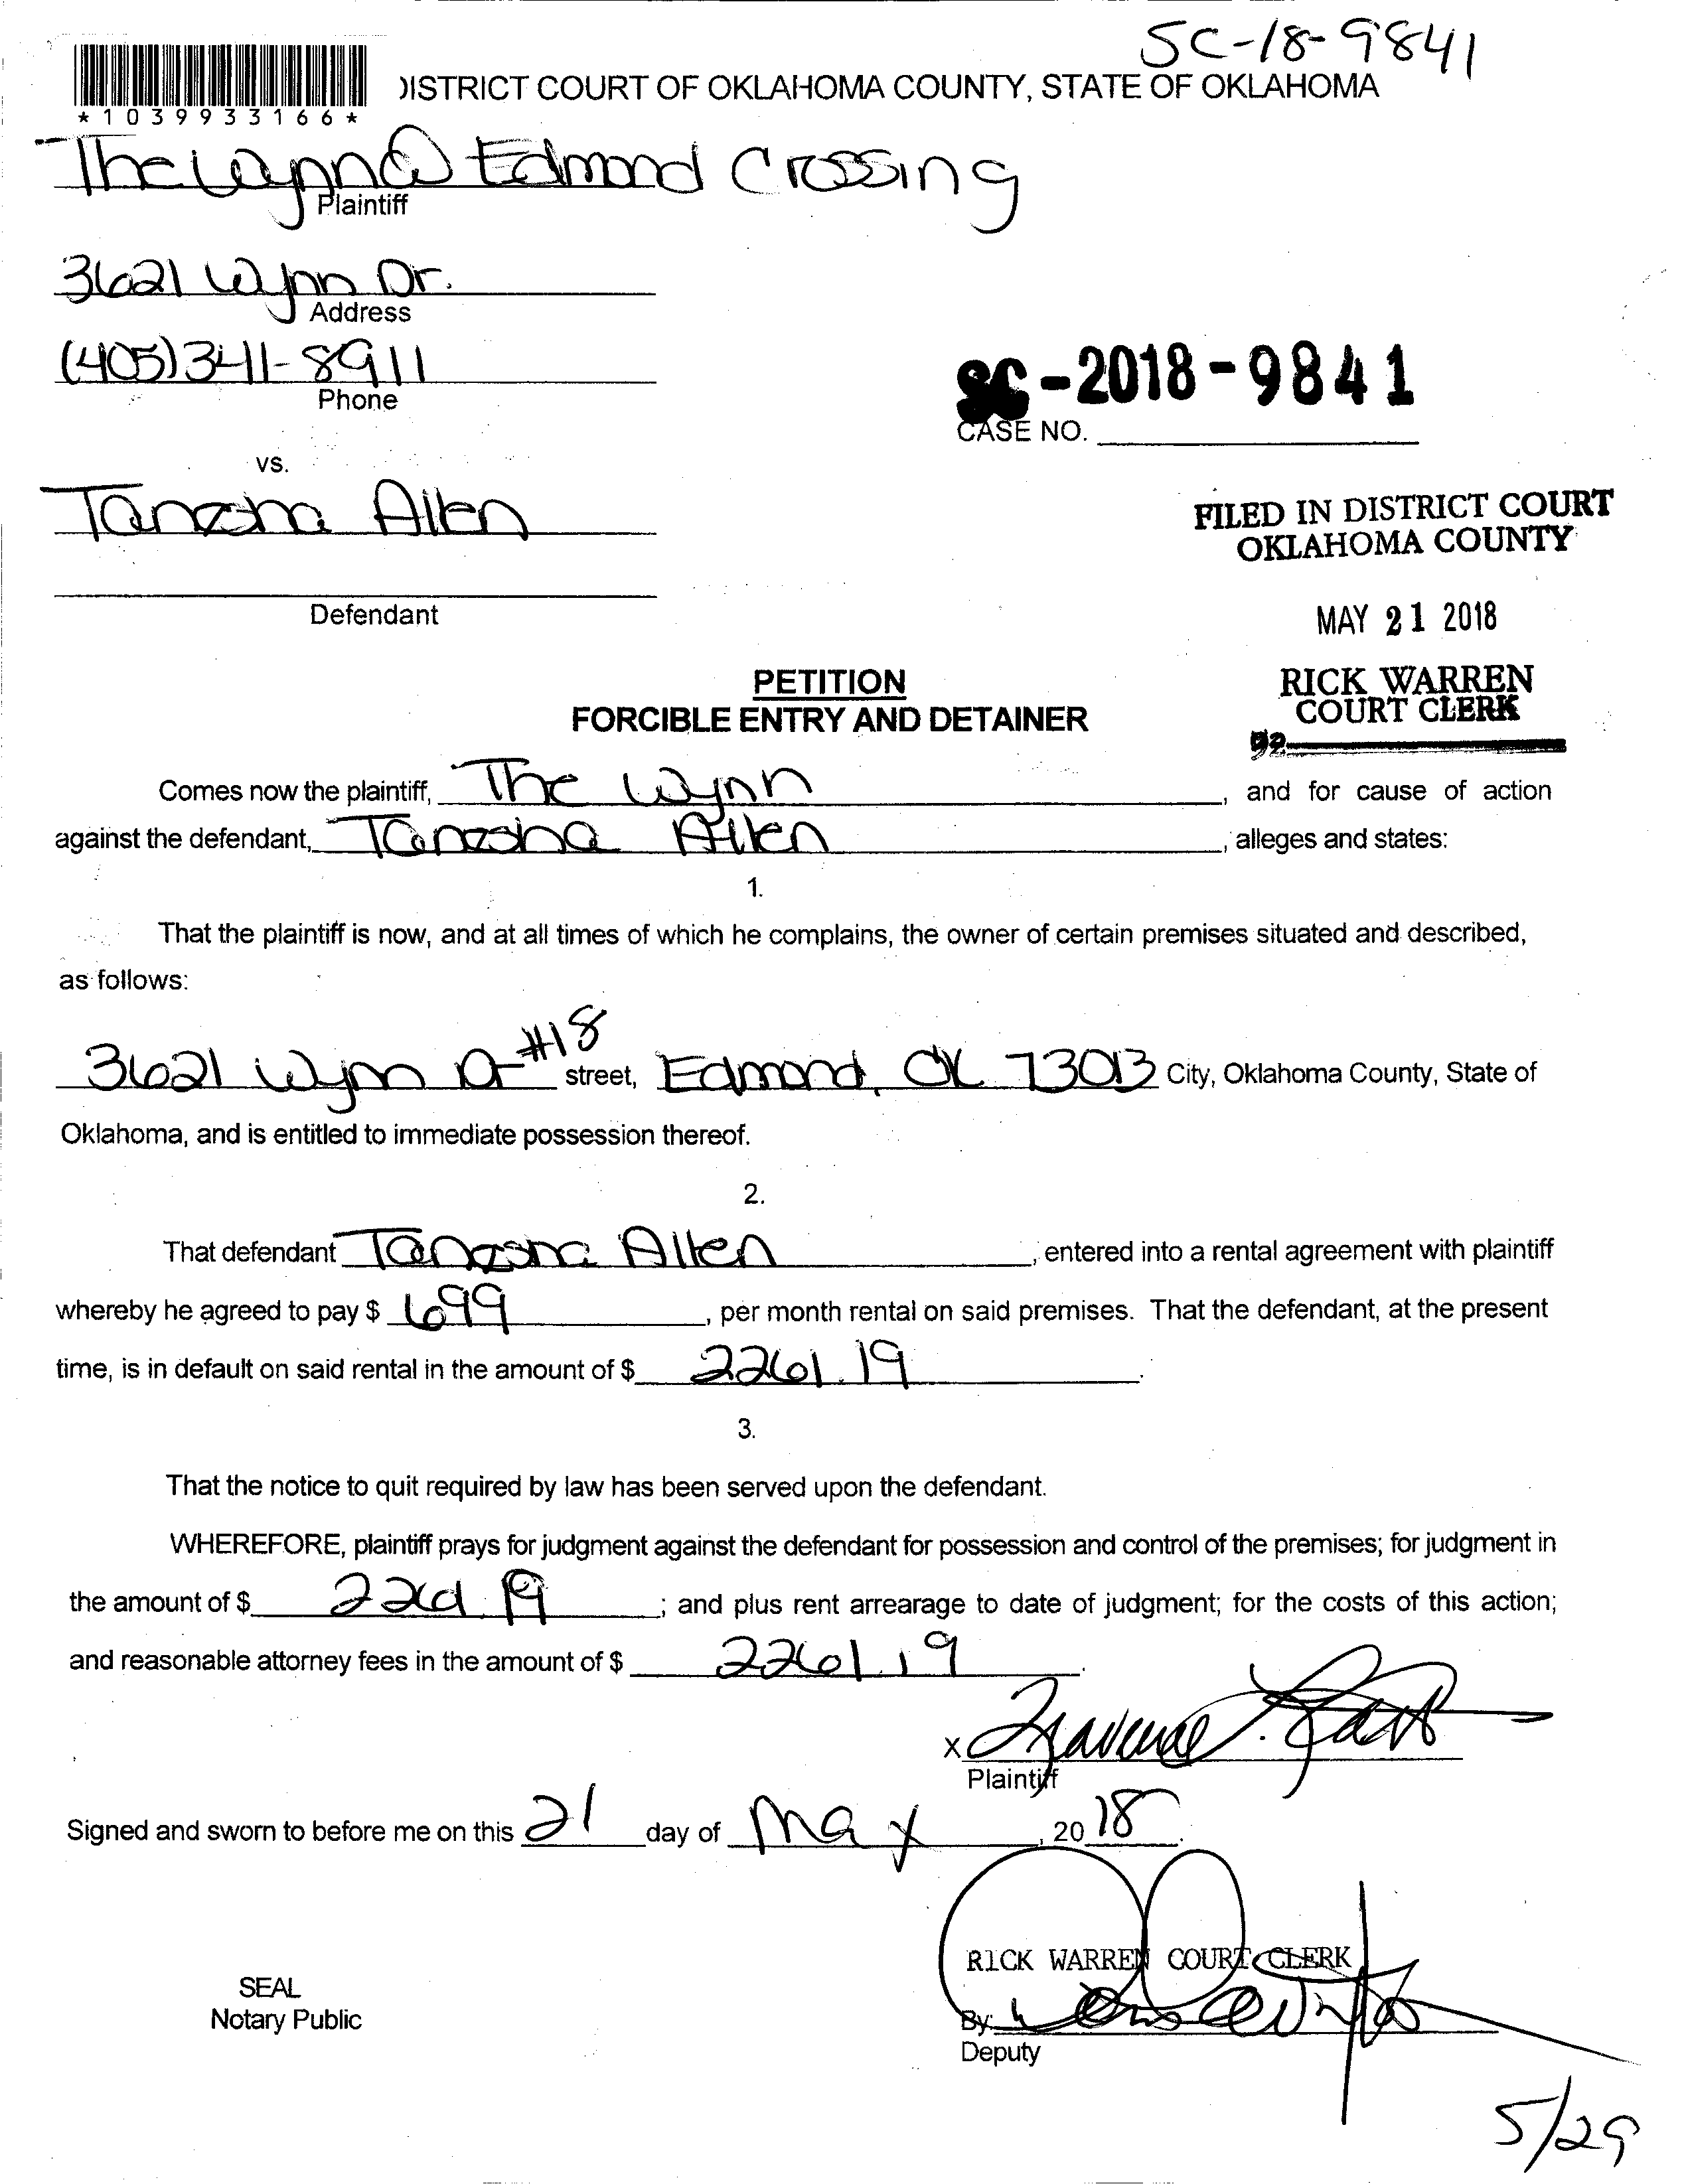 SC-18-9841
DISTRICT COURT OF OKLAHOMA COUNTY, STATE OF OKLAHOMA
*1039933166*
The Wynn @ Edmond Crossing
Plaintiff
3621 Wynn Dr.
Address
(405)341-8911
Phone
SC-2018-9841
CASE NO.
vs.
Tanesha Allen
FILED IN DISTRICT COURT
OKLAHOMA COUNTY
Defendant
MAY 21 2018
PETITION
FORCIBLE ENTRY AND DETAINER
RICK WARREN
COURT CLERK
Comes now the plaintiff, The Wynn, and for cause of action
against the defendant, Tanesha Allen, alleges and states:
1.
That the plaintiff is now, and at all times of which he complains, the owner of certain premises situated and described,
as follows:
3621 Wynn Dr #18 street, Edmond, OK 73013 City, Oklahoma County, State of
Oklahoma, and is entitled to immediate possession thereof.
2.
That defendant Tanesha Allen, entered into a rental agreement with plaintiff
whereby he agreed to pay $ 699, per month rental on said premises. That the defendant, at the present
time, is in default on said rental in the amount of $ 2261.19.
3.
That the notice to quit required by law has been served upon the defendant.
WHEREFORE, plaintiff prays for judgment against the defendant for possession and control of the premises; for judgment in
the amount of $ 2261.19; and plus rent arrearage to date of judgment; for the costs of this action;
and reasonable attorney fees in the amount of $ 2261.19.
X
Plaintiff
Signed and sworn to before me on this 21 day of May, 2018.
RICK WARREN COURT CLERK
SEAL
Notary Public
By:
Deputy
5/29